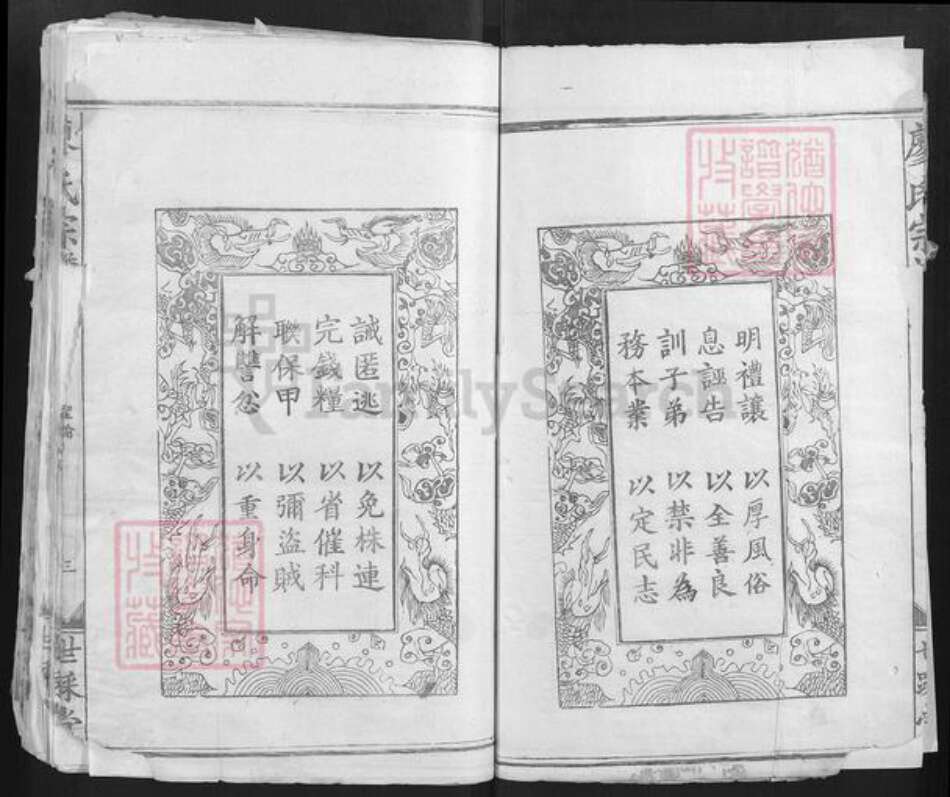 明禮讓 以厚風俗
息誣告 以全善良
訓子弟 以禁非為
務本業 以定民志
誡匿逃 以免株連
完錢糧 以省催科
聯保甲 以彌盜賊
解讐忿 以重身命
廖氏宗
氏宗
聖諭
三
世綵堂
譜學
收藏
收藏
FamilySearch